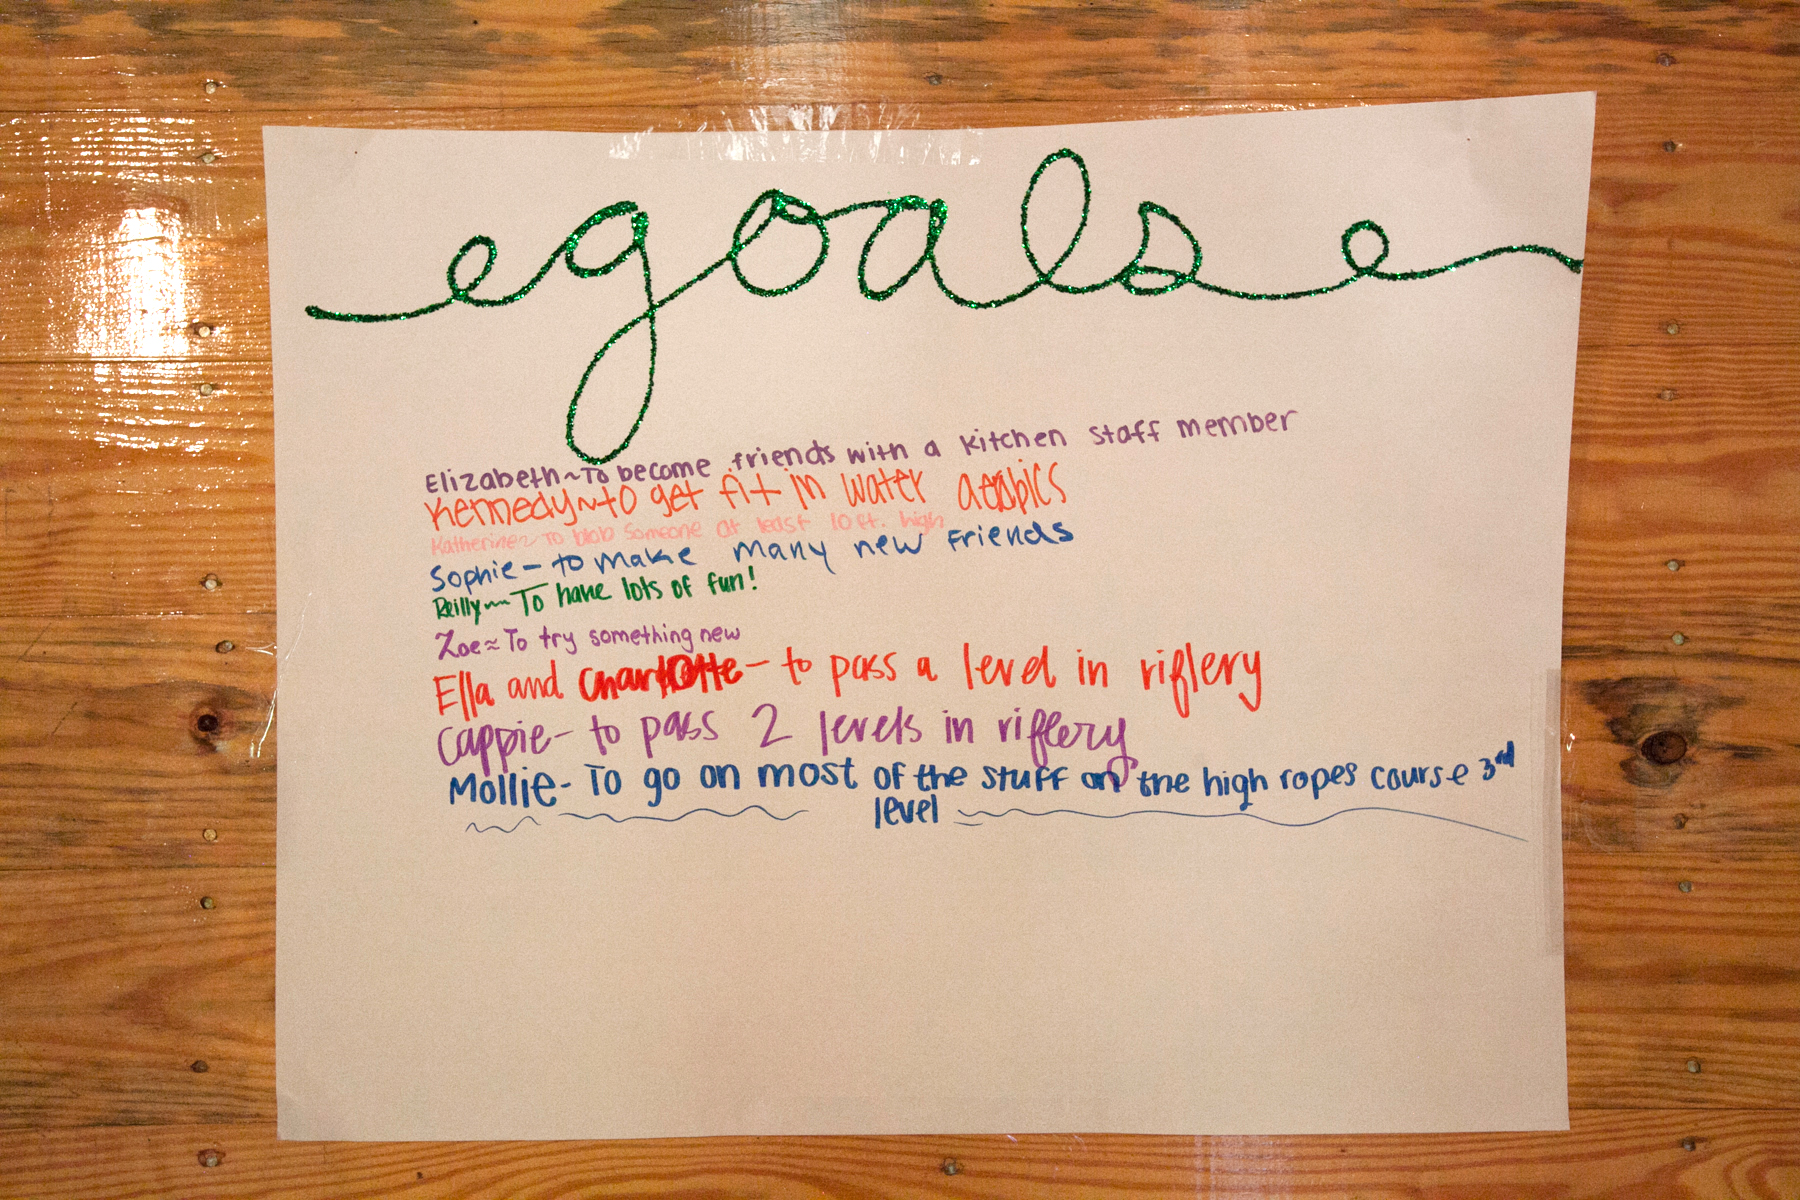 goals
Elizabeth~To become friends with a kitchen staff member
Kennedy~to get fit in water aerobics
Katherine~ To blob someone at least 10 ft. high
Sophie - to make many new friends
Reilly~ To have lots of fun!
Zoe≈ To try something new
Ella and Charlotte - to pass a level in riflery
Cappie - to pass 2 levels in riflery
Mollie - To go on most of the stuff on the high ropes course 3rd
level